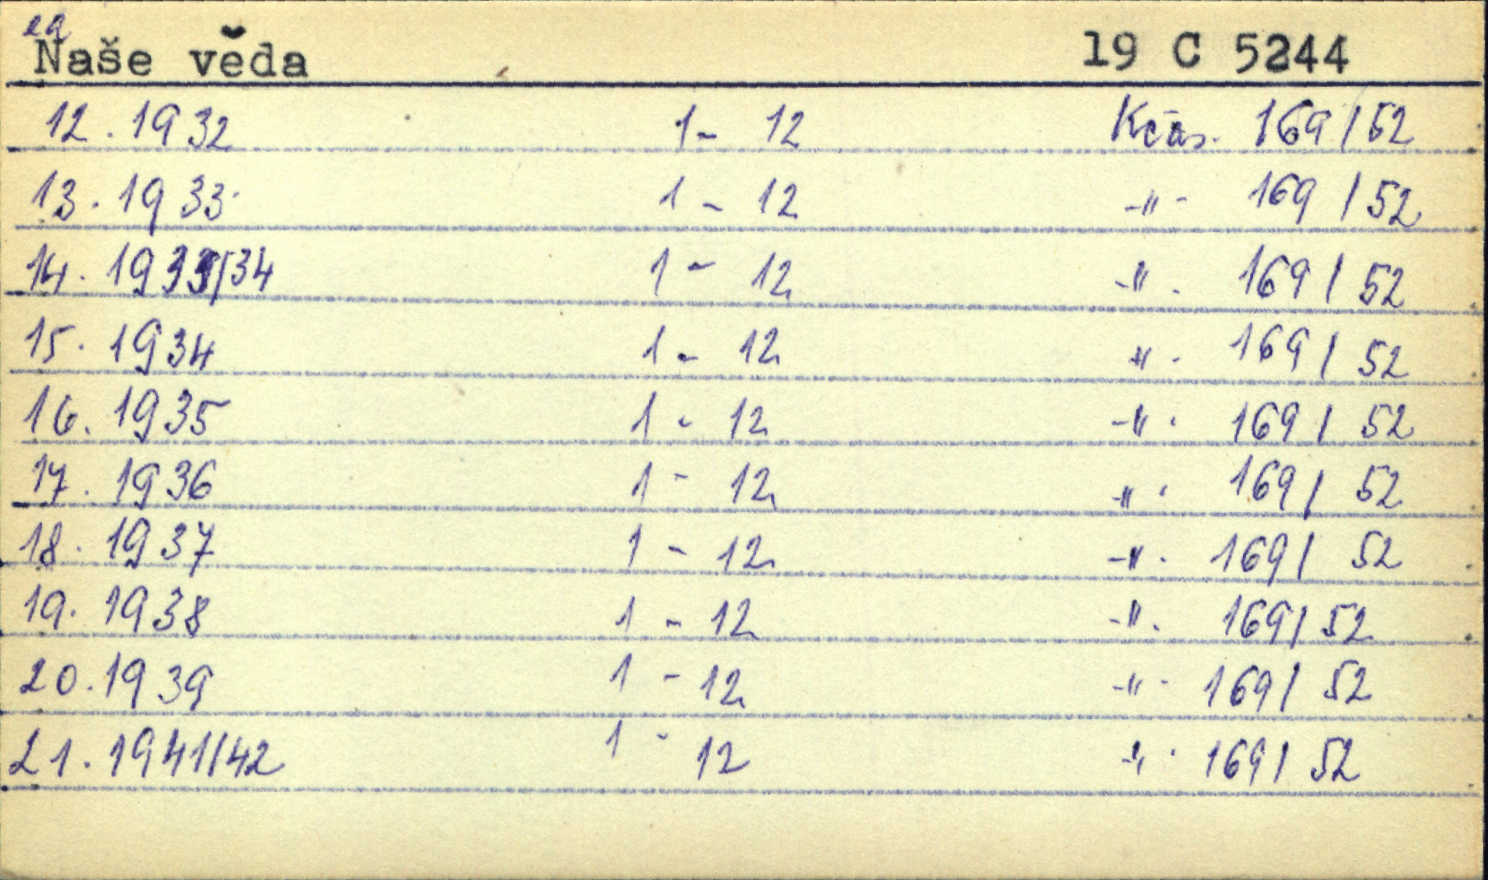 Naše věda 19 C 5244
12. 1932 1 - 12 Kčs. 169/52
13. 1933 1 - 12 -"- 169/52
14. 1933/34 1 - 12 -"- 169/52
15. 1934 1 - 12 -"- 169/52
16. 1935 1 - 12 -"- 169/52
17. 1936 1 - 12 -"- 169/52
18. 1937 1 - 12 -"- 169/52
19. 1938 1 - 12 -"- 169/52
20. 1939 1 - 12 -"- 169/52
21. 1941/42 1 - 12 -"- 169/52